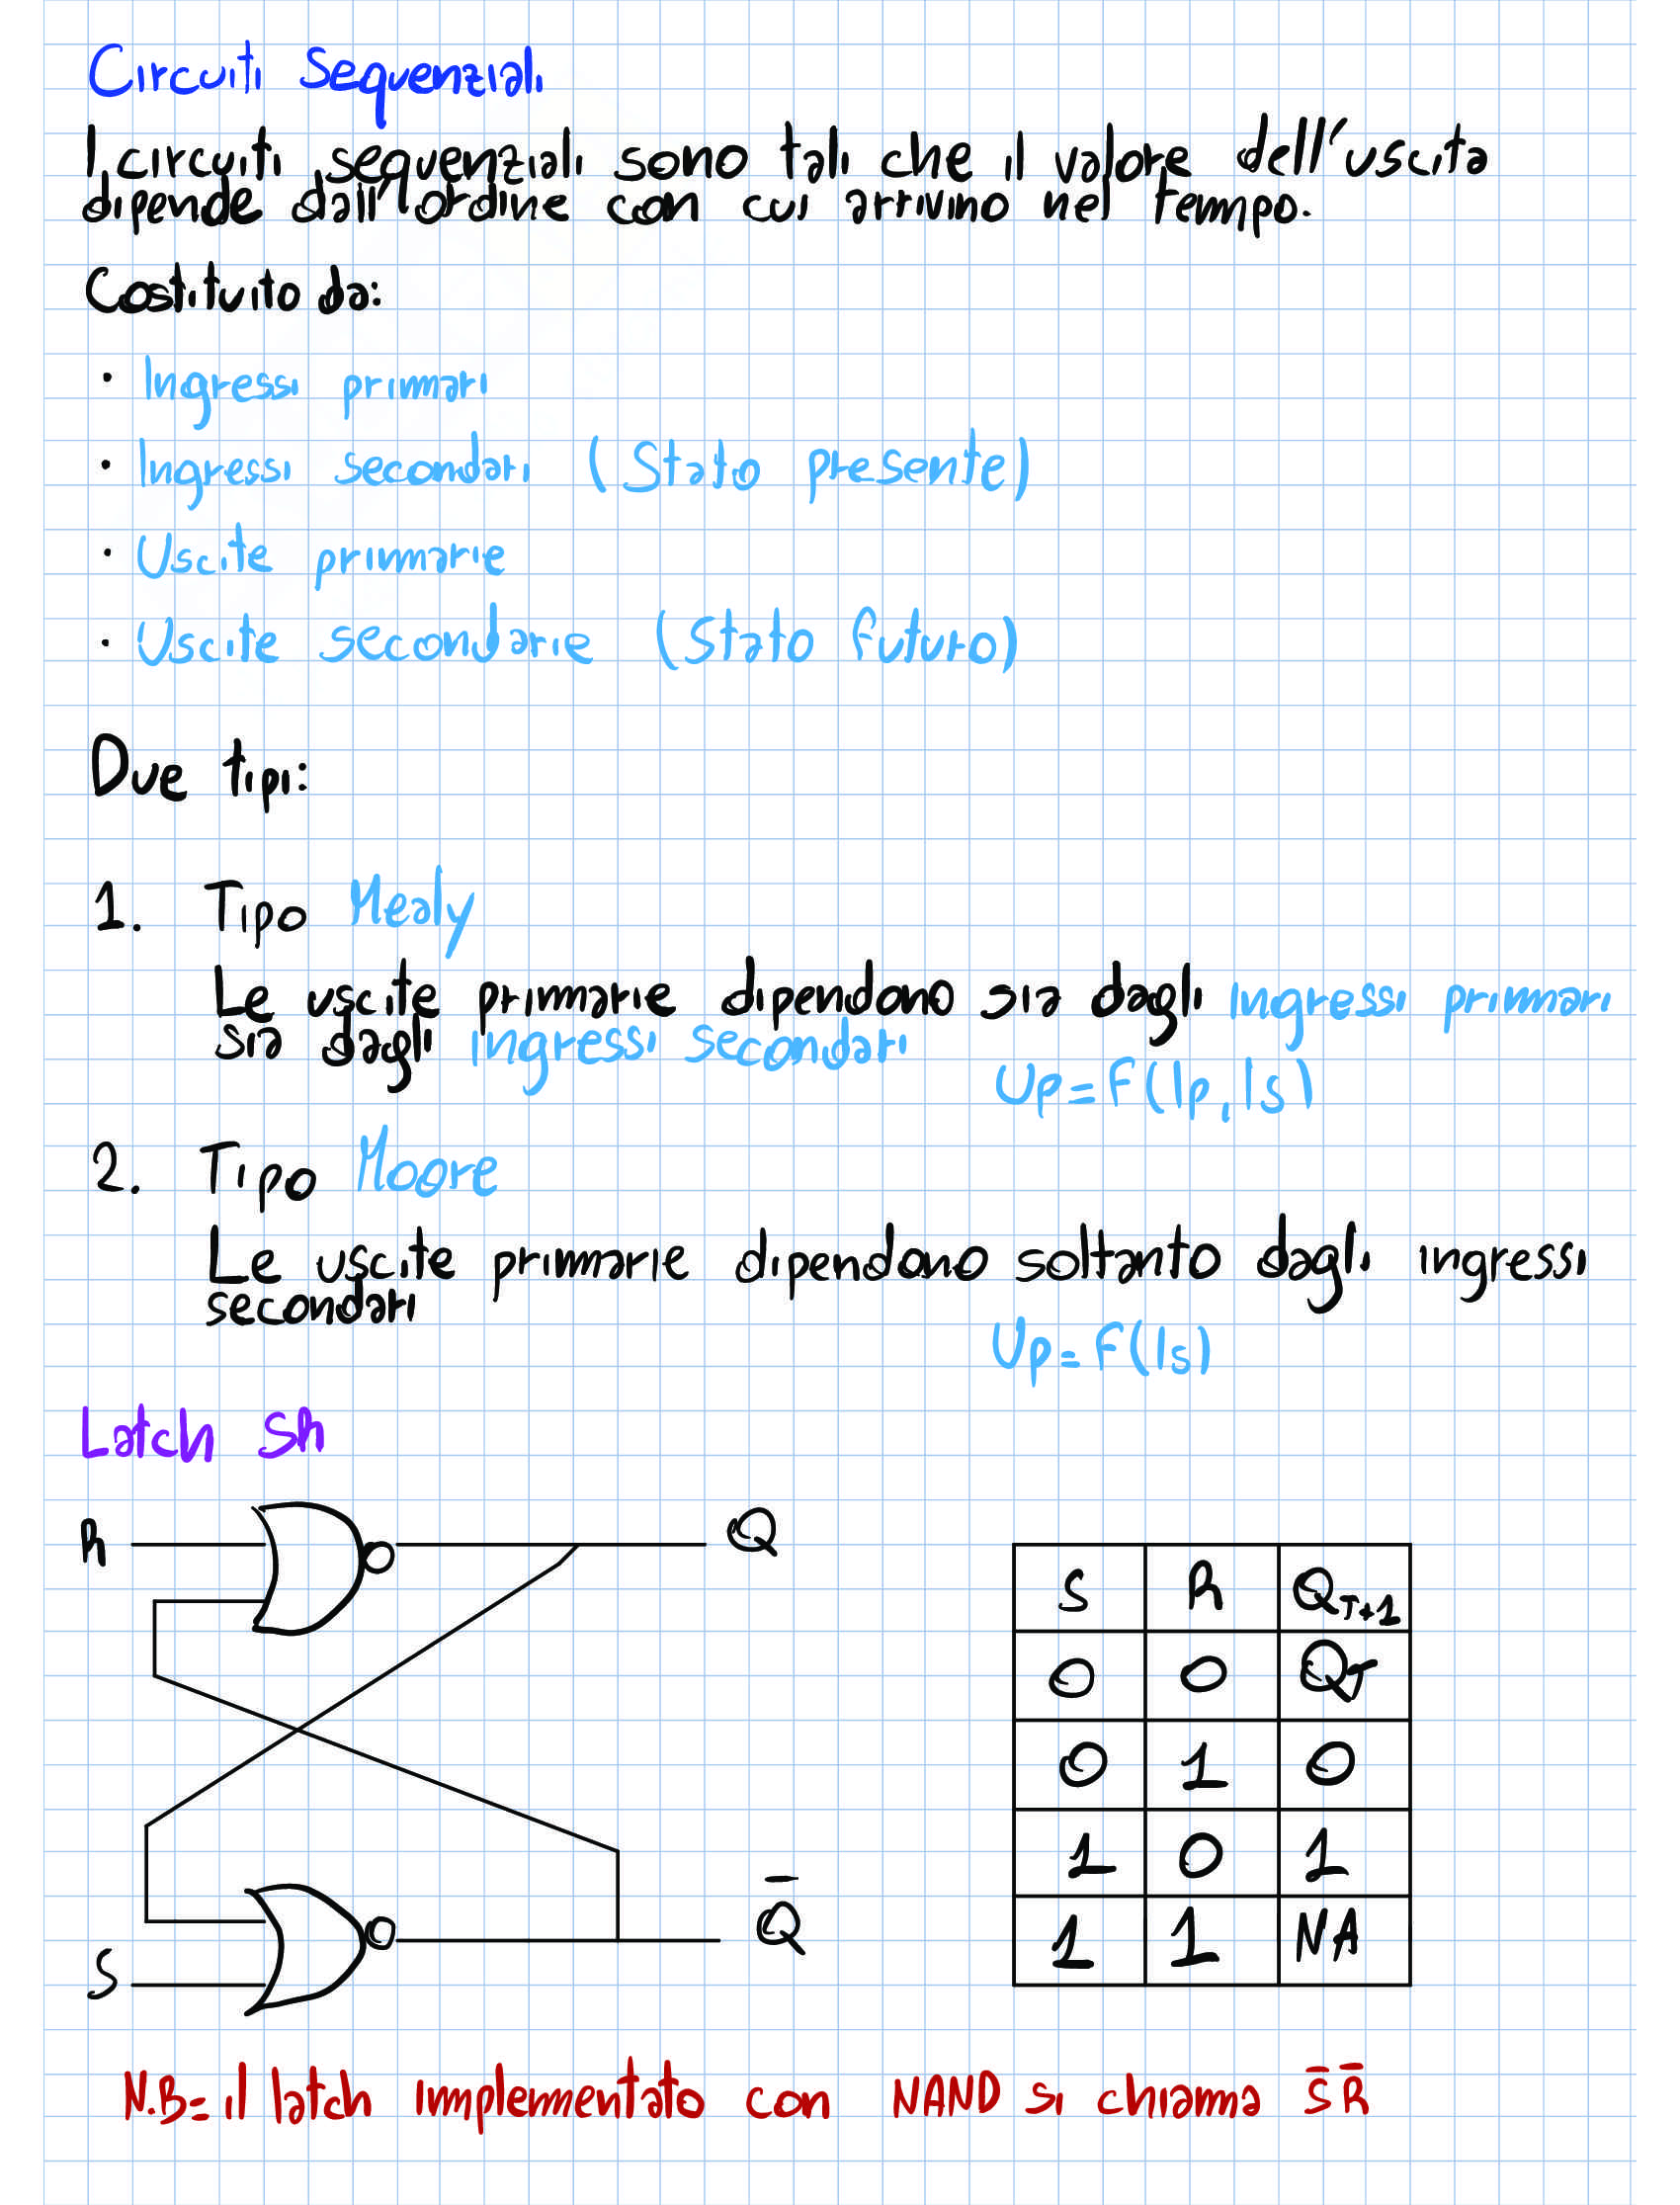 Circuiti Sequenziali
I circuiti sequenziali sono tali che il valore dell'uscita
dipende dall'ordine con cui arrivino nel tempo.
Costituito da:
· Ingressi primari
· Ingressi secondari (Stato presente)
· Uscite primarie
· Uscite secondarie (Stato futuro)
Due tipi:
1. Tipo Mealy
Le uscite primarie dipendono sia dagli ingressi primari
sia dagli ingressi secondari
Up=F(Ip, Is)
2. Tipo Moore
Le uscite primarie dipendono soltanto dagli ingressi
secondari
Up=F(Is)
Latch SR
R Q
S Q̅
S R Q_{T+1}
0 0 Q_T
0 1 0
1 0 1
1 1 NA
N.B= il latch implementato con NAND si chiama S̅ R̅